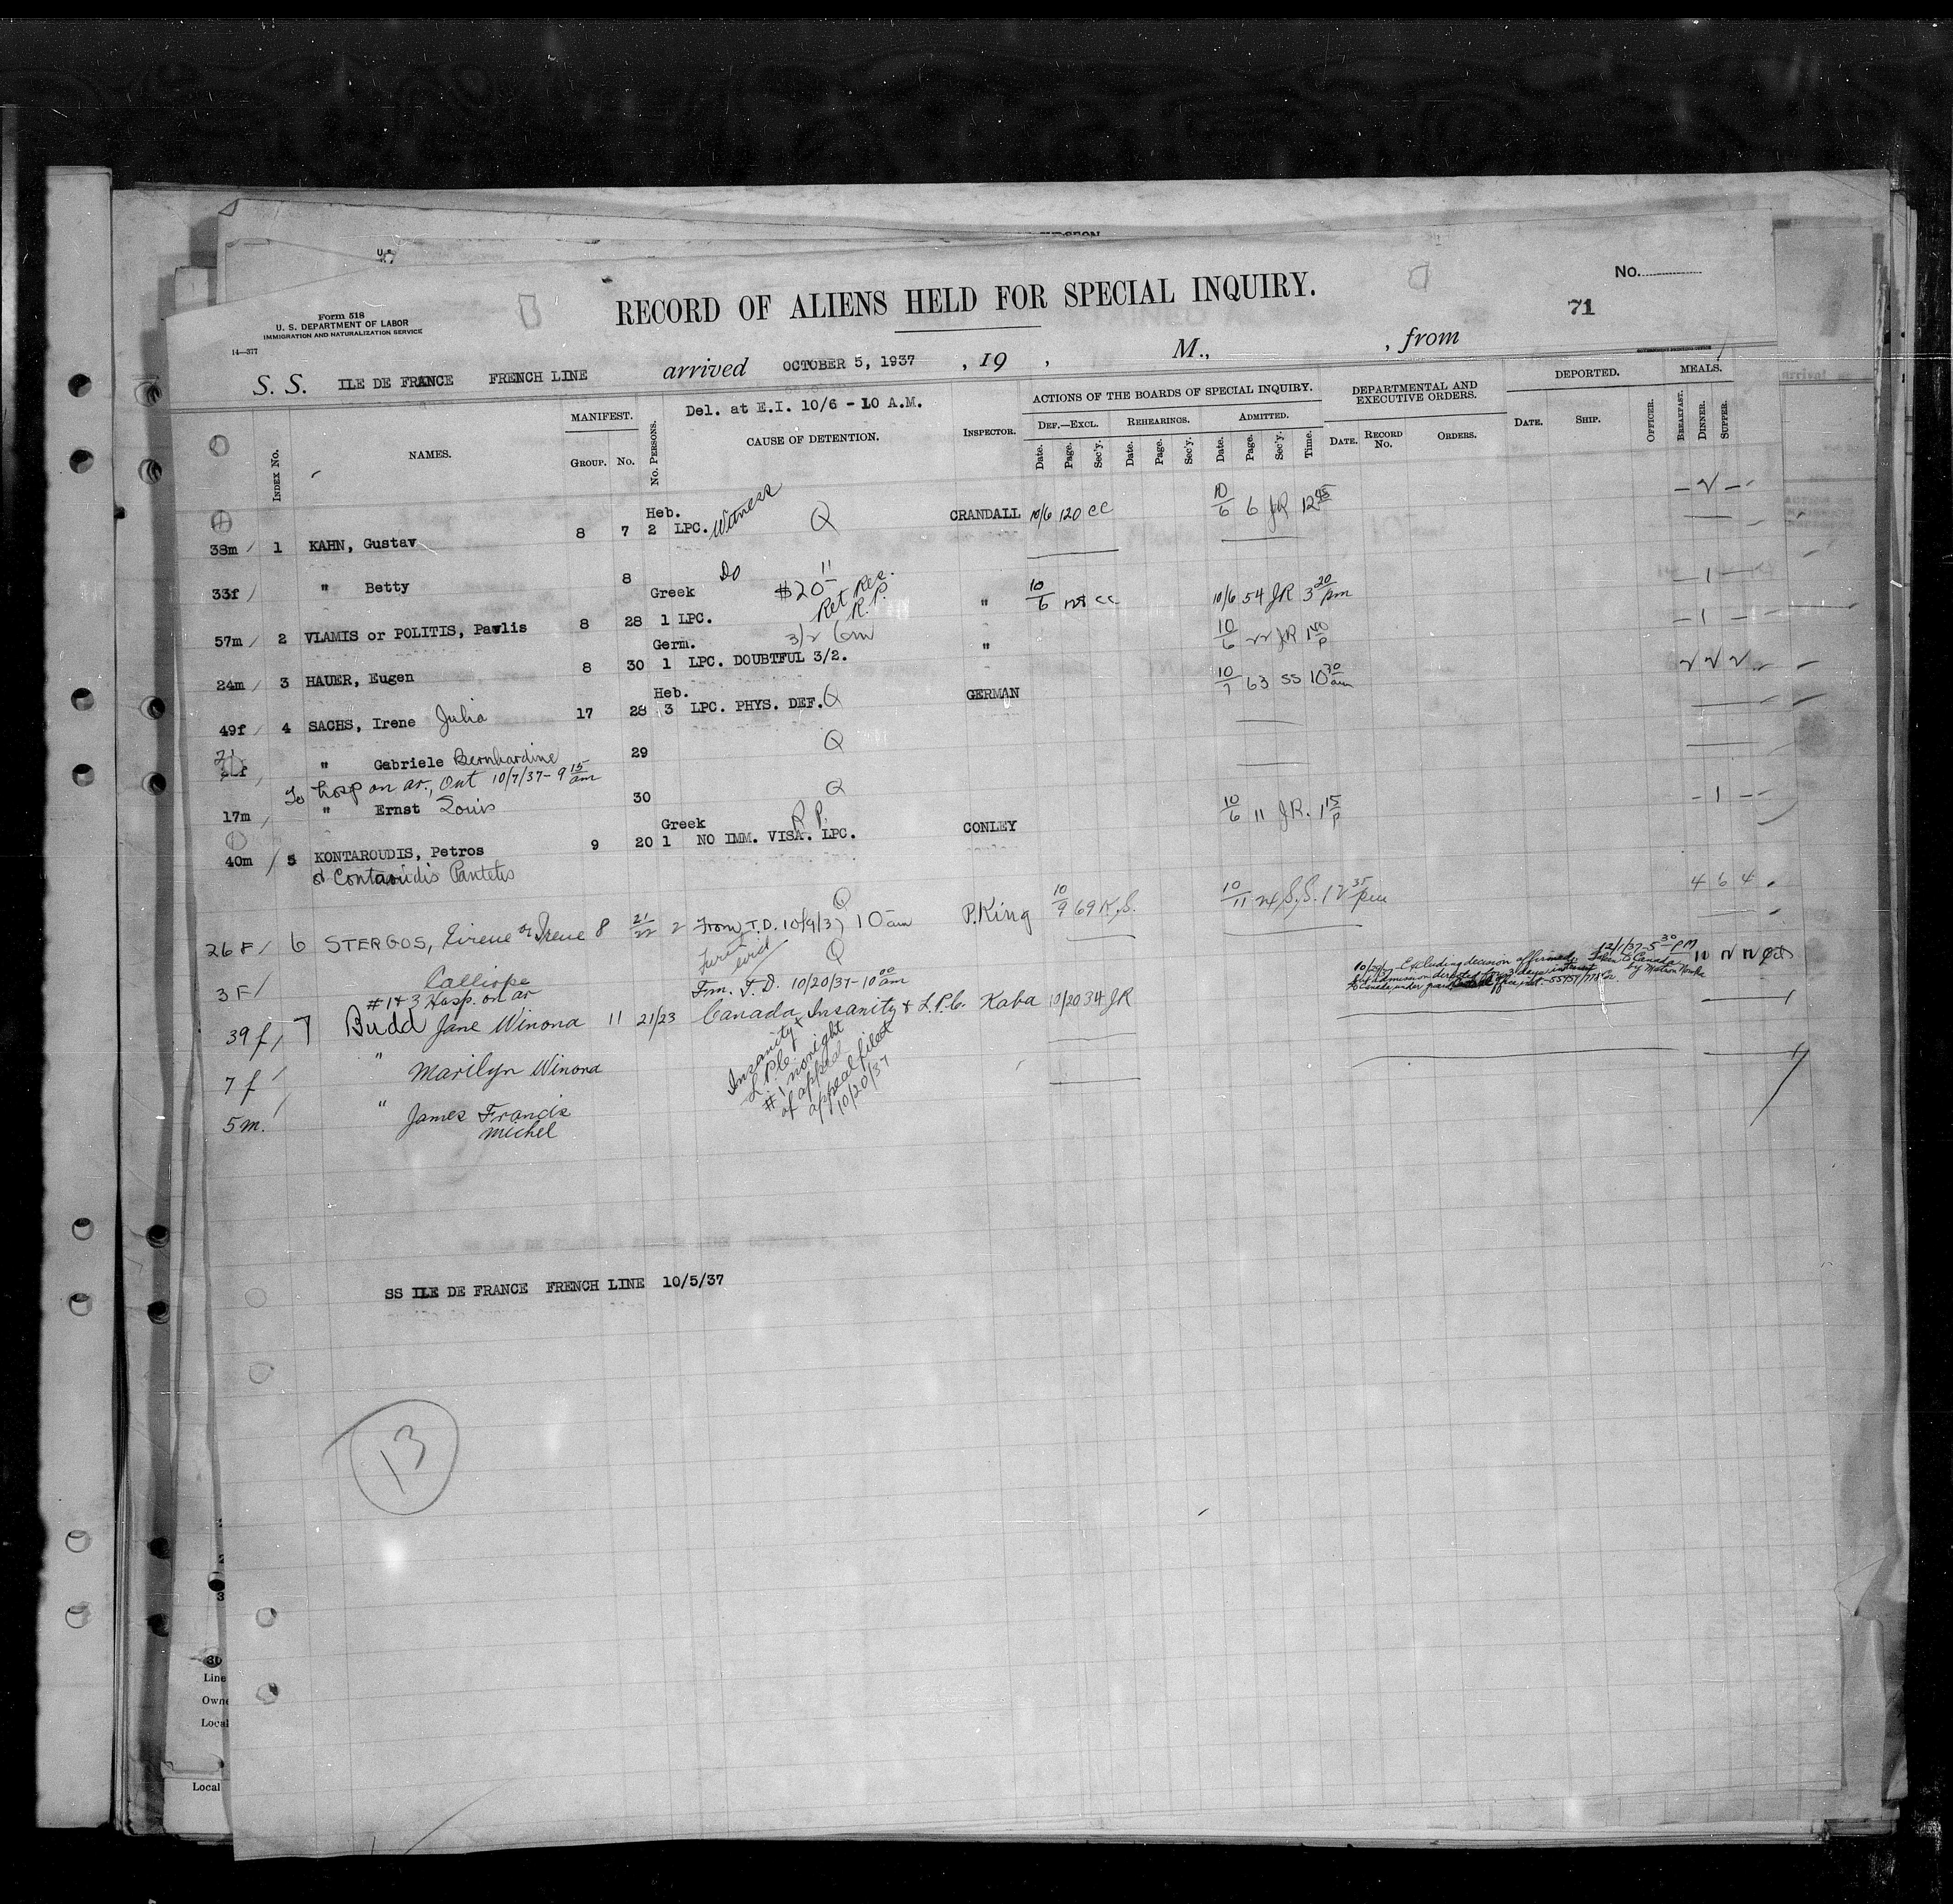 No.
71
RECORD OF ALIENS HELD FOR SPECIAL INQUIRY.
Form 518
U. S. DEPARTMENT OF LABOR
IMMIGRATION AND NATURALIZATION SERVICE
14—377
S. S. ILE DE FRANCE FRENCH LINE arrived OCTOBER 5, 1937 , 19 , M., , from
Del. at E.I. 10/6 - 10 A.M.
INDEX No. NAMES. MANIFEST. GROUP. No. No. PERSONS. CAUSE OF DETENTION. INSPECTOR.
ACTIONS OF THE BOARDS OF SPECIAL INQUIRY.
DEF.—EXCL. REHEARINGS. ADMITTED.
Date. Page. Sec'y. Date. Page. Sec'y. Date. Page. Sec'y. Time.
DEPARTMENTAL AND EXECUTIVE ORDERS.
DATE. RECORD No. ORDERS.
DEPORTED.
DATE. SHIP. OFFICER.
MEALS.
BREAKFAST. DINNER. SUPPER.
38m 1 KAHN, Gustav 8 7 2 Heb. LPC. Witness Q CRANDALL 10/6 120 CC 10/6 6 JR 12 45
33f " Betty 8 Do "
57m 2 VLAMIS or POLITIS, Pavlis 8 28 1 Greek LPC. $20 Ret Rec. R.P. " 10/6 128 CC 10/6 54 JR 3 20 pm
24m 3 HAUER, Eugen 8 30 1 Germ. LPC. DOUBTFUL 3/2. 3/2 6m " 10/6 22 JR 1 40 P
49f 4 SACHS, Irene Julia 17 28 3 Heb. LPC. PHYS. DEF. Q GERMAN 10/7 63 SS 10 30 am
21f " Gabriele Bernhardine 29 Q
To hosp on ar., Out 10/7/37 - 9 15 am
17m " Ernst Louis 30 Q
40m 5 KONTAROUDIS, Petros 9 20 1 Greek NO IMM. VISA. LPC. R.P. CONLEY 10/6 11 J.R. 1 15 P
or Contaoudis Pantelis
26 F 6 STERGOS, Eirene or Irene 8 21/22 2 From T.D. 10/9/37 10 am Q P. King 10/9 69 K.S. 10/11 24 S.S. 12 35 pm 4 6 4
3 F Calliope Q
#1 & 3 Hosp. on ar Frm. T.D. 10/20/37 - 10 00 am
39 f 7 Budd Jane Winona 11 21/23 Canada Insanity & L.P.C. Kaba 10/20 34 JR
10/29/37 Excluding decision affirmed.
12/1/37 - 5 30 PM
Taken to Canada by Matron
7 f " Marilyn Winona
Insanity & L.P.C.
#1 no right of appeal
appeal filed 10/20/37
5 m. " James Francis Michel
SS ILE DE FRANCE FRENCH LINE 10/5/37
13
Line
Owne
Local
Local